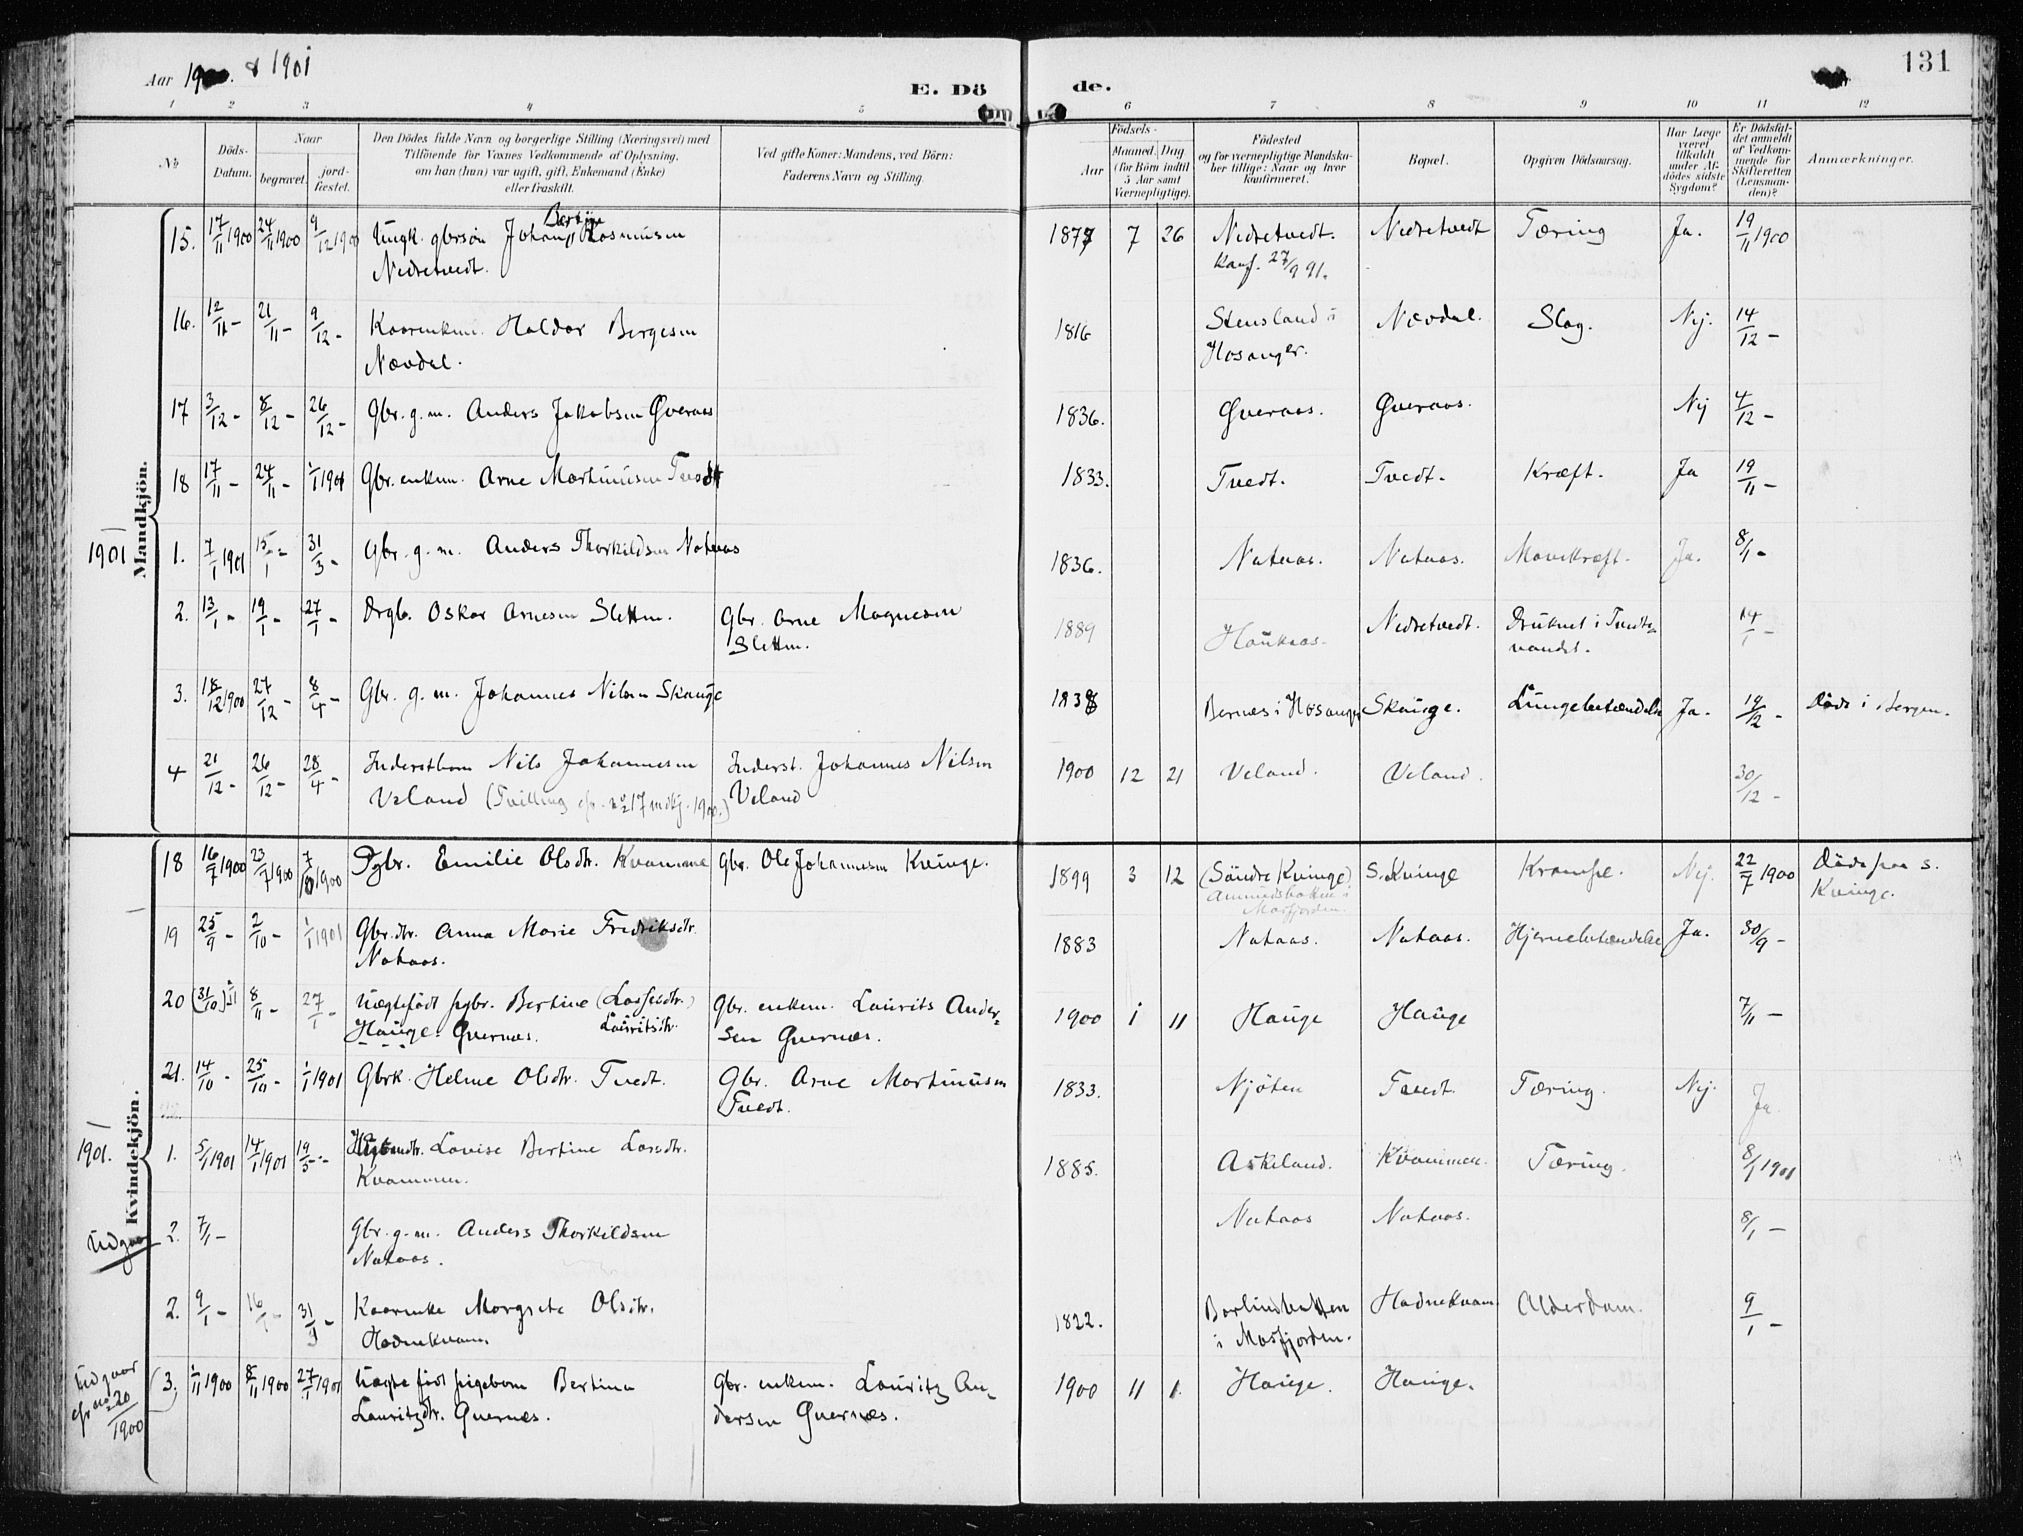 Aar 1900. & 1901
E. Dö de.
131
1 2 3 4 5 6 7 8 9 10 11 12
No
Döds-Datum.
Naar
begravet.
jord-fæstet.
Den Dödes fulde Navn og borgerlige Stilling (Næringsvei) med
Tilföiende for Voxnes Vedkommende af Oplysning,
om han (hun) var ugift, gift, Enkemand (Enke)
eller fraskilt.
Ved gifte Koner: Mandens, ved Börn:
Faderens Navn og Stilling.
Födsels-
Aar
Maaned. Dag
(for Börn indtil
5 Aar samt
Værnepligtige).
Födested
og for værnepligtige Mandska-
ber tillige: Naar og hvor
konfirmeret.
Bopæl.
Opgiven Dödsaarsag.
Har Læge
været
tilkaldt
under Af-
dödes sidste
Sygdom?
Er Dödsfal-
det anmeldt
af Vedkom-
mende for
Skifteretten
(Lensman-
den)?
Anmærkninger.
Mandkjön.
15. 17/11 1900 24/11 1900 9/12 1900 Ungk. gbrsön Johan Bertin Rasmusen 1877 7 26 Nedretvedt. Nedretvedt Tæring Ja. 19/11 1900
Nedretvedt. Konf. 27/9 91.
16. 12/11 - 21/11 - 9/12 - Kaarenkem. Haldor Bergesen 1816 Stensland i Nævdal. Slag. Nej. 14/12 -
Nævdal. Hosanger.
17 3/12 - 8/12 - 26/12 - Gbr. g. m. Anders Jakobsen Qveraas 1836. Qveraas. Qveraas. Nej 4/12 -
18 17/11 - 24/11 - 1/1 1901 Gbr. enkem. Arne Martinusen Tvedt 1833. Tvedt. Tvedt. Kræft. Ja 19/11 -
1901
1. 7/1 1901 15/1 - 31/3 - Gbr. g. m. Anders Thorkildsen Nataas 1836. Nataas. Nataas. Mavekræft. Ja. 8/1 -
2. 13/1 - 19/1 - 27/1 - Drgb. Oskar Arnesen Sletten. Gbr. Arne Magnesen 1889 Haukaas. Nedretvedt. Druknet i Tvedte- 14/1 -
Sletten. vandet.
3. 18/12 1900 27/12 - 8/4 - Gbr. g. m. Johannes Nilsen Skauge 1838 Bernæs i Hosanger Skauge. Lungebetændelse Ja. 19/12 - Döde i Bergen.
4 21/12 - 26/12 - 28/4 - Inderstbarn Nils Johannesen Inderst. Johannes Nilsen 1900 12 21 Veland. Veland. 30/12 -
Veland (Tvilling cfr. no 17 mdkj. 1900.) Veland
Kvindekjön.
18 16/7 1900 23/7 1900 7/10 1900 Pgbr. Emilie Olsdtr. Kvamme Gbr. Ole Johannesen Kvinge. 1899 3 12 (Söndre Kvinge) S. Kvinge Krampe. Nej. 22/7 1900 Döde paa S.
Amundsbakken i Kvinge.
Masfjorden.
19 25/9 - 2/10 - 1/1 1901 Gbr. dtr. Anna Marie Fredriksdtr. 1883 Nataas. Nataas. Hjernebetændelse Ja. 30/9 -
Nataas.
20 (31/10) 1/11 8/11 - 27/1 - Uægtefödt pgbr. Bertine (Lassesdtr.) Gbr. enkem. Laurits Ander- 1900 1 11 Hauge Hauge 7/11 -
Hauge Qvernæs. Lauritsdtr. sen Qvernæs.
21. 14/10 - 25/10 - 1/1 1901 Gbrk. Helene Olsdtr. Tvedt. Gbr. Arne Martinusen 1833. Njöten Tvedt. Tæring. Nej. Ja.
Tvedt.
1901.
1. 5/1 1901 14/1 1901 19/5 - Lovise Bertine Larsdtr. 1885. Askeland. Kvammen. Tæring. 8/1 1901
Kvammen.
Udgaar 2. 7/1 - Gbr. g. m. Anders Thorkildsen Nataas Nataas. 8/1 -
Nataas.
2. 9/1 - 16/1 - 31/3 - Kaarenke Margrete Olsdtr. 1822. Hadnekvam. Alderdom. 9/1 -
Hadnekvam. i Masfjorden.
Udgaar
cfr. no 20/1900
3. 1/11 1900 8/11 1900 27/1 1901 Uægte född pigebarn Bertine Gbr. enkem. Lauritz An- 1900 11 1. Hauge. Hauge.
Lauritzdtr. Qvernæs. dersen Qvernæs.